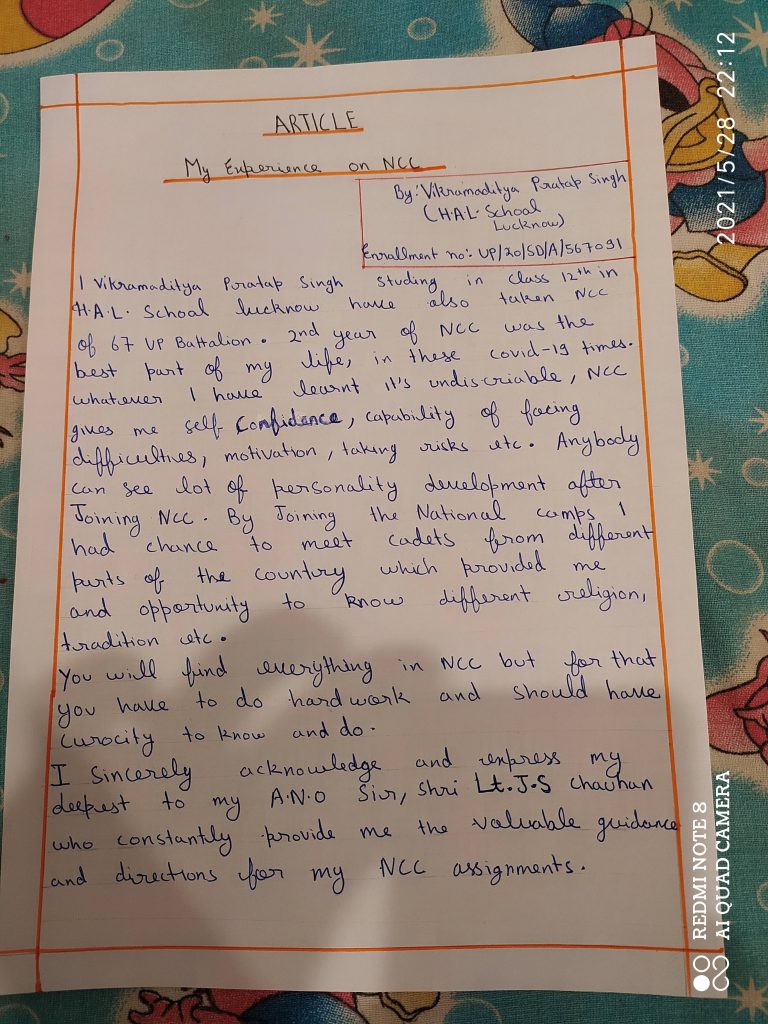 ARTICLE
My Experience on NCC
By: Vikramaditya Pratap Singh
(H.A.L. School
Lucknow)
Enrallment no:- UP/20/SD/A/567091
I Vikramaditya Pratap Singh studing in Class 12th in
H.A.L. School lucknow have also taken NCC
of 67 UP Battalion. 2nd year of NCC was the
best part of my life, in these covid-19 times.
whatever I have learnt it's undiscriable, NCC
gives me self Confidence, capability of facing
difficulties, motivation, taking risks etc. Anybody
can see lot of personality development after
Joining NCC. By Joining the National camps I
had chance to meet cadets from different
parts of the country which provided me
and opportunity to know different religion,
tradition etc.
You will find everything in NCC but for that
you have to do hardwork and should have
curocity to know and do.
I Sincerely acknowledge and express my
deepest to my A.N.O Sir, Shri Lt.J.S Chauhan
who constantly provide me the valuable guidance
and directions for my NCC assignments.
2021/5/28 22:12
REDMI NOTE 8
AI QUAD CAMERA